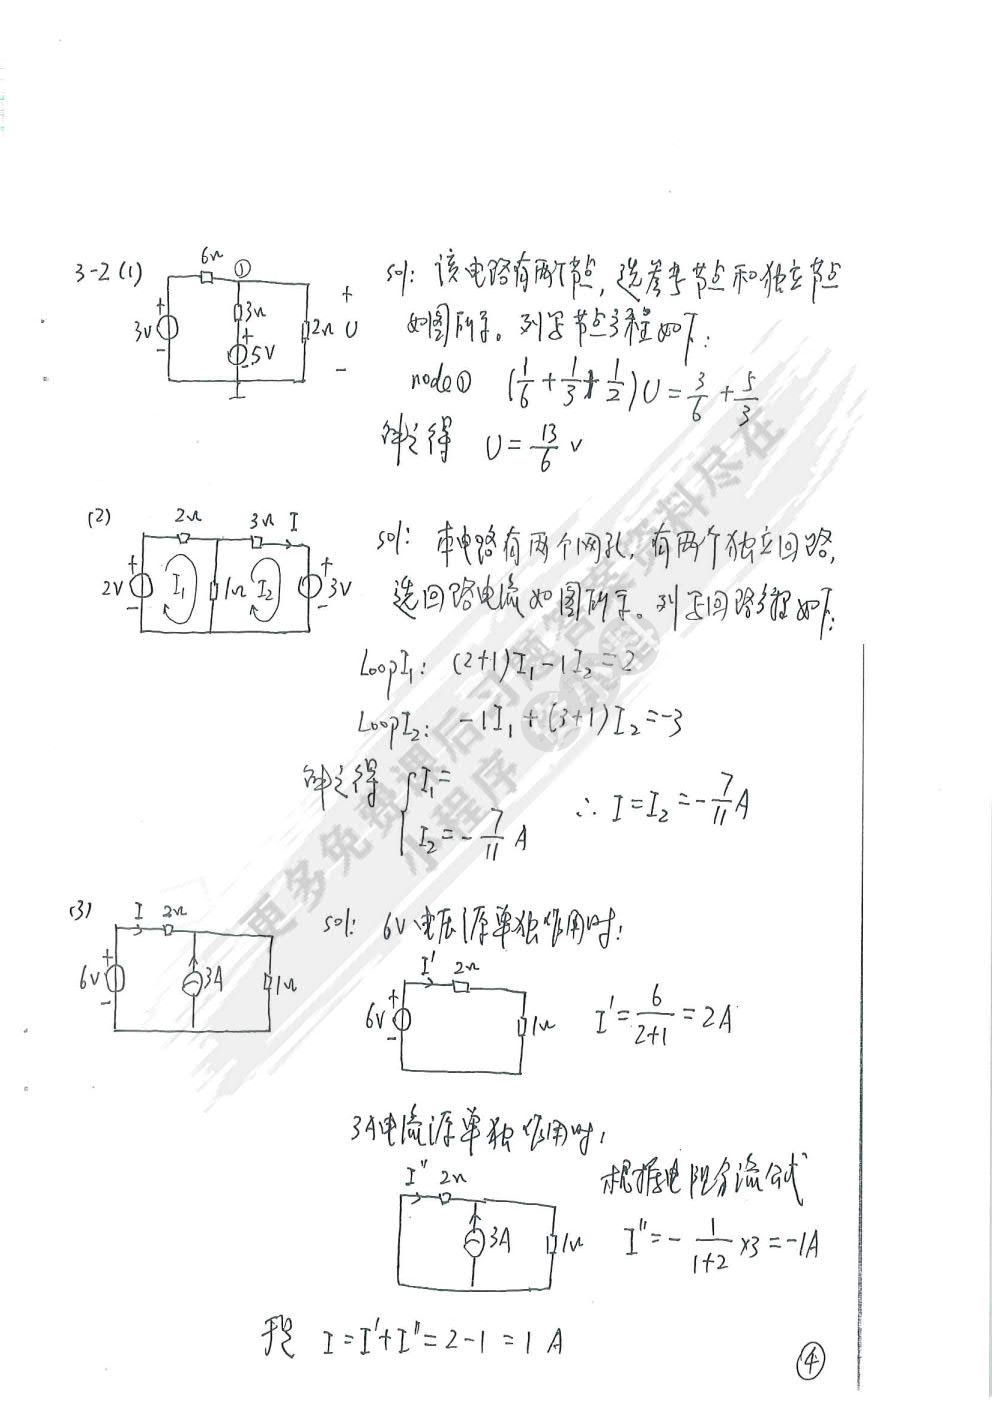 3-2(1)
6Ω
①
3V
+
-
3Ω
+
-
5V
2Ω
+
U
-
sol: 该电路有两个节点, 选参考节点和独立节点
如图所示。列写节点方程如下:
node① (1/6 + 1/3 + 1/2)U = 3/6 + 5/3
解之得 U = 13/6 V
(2)
2Ω 3Ω I
2V
+
-
I₁
1Ω
I₂
+
-
3V
sol: 本电路有两个网孔, 有两个独立回路,
选回路电流如图所示。列写回路方程如下:
LoopI₁: (2+1)I₁-1I₂=2
LoopI₂: -1I₁+(3+1)I₂=-3
解之得 { I₁=
I₂=-7/11 A
∴ I=I₂=-7/11 A
(3)
I 2Ω
6V
+
-
3A
1Ω
sol: 6V电压源单独作用时:
I' 2Ω
6V
+
-
1Ω
I'=6/(2+1)=2A
3A电流源单独作用时:
I'' 2Ω
3A
1Ω
根据电阻分流公式
I''=-1/(1+2)×3=-1A
于是 I=I'+I''=2-1=1 A
④
更多免费课后习题答案资料尽在
小程序